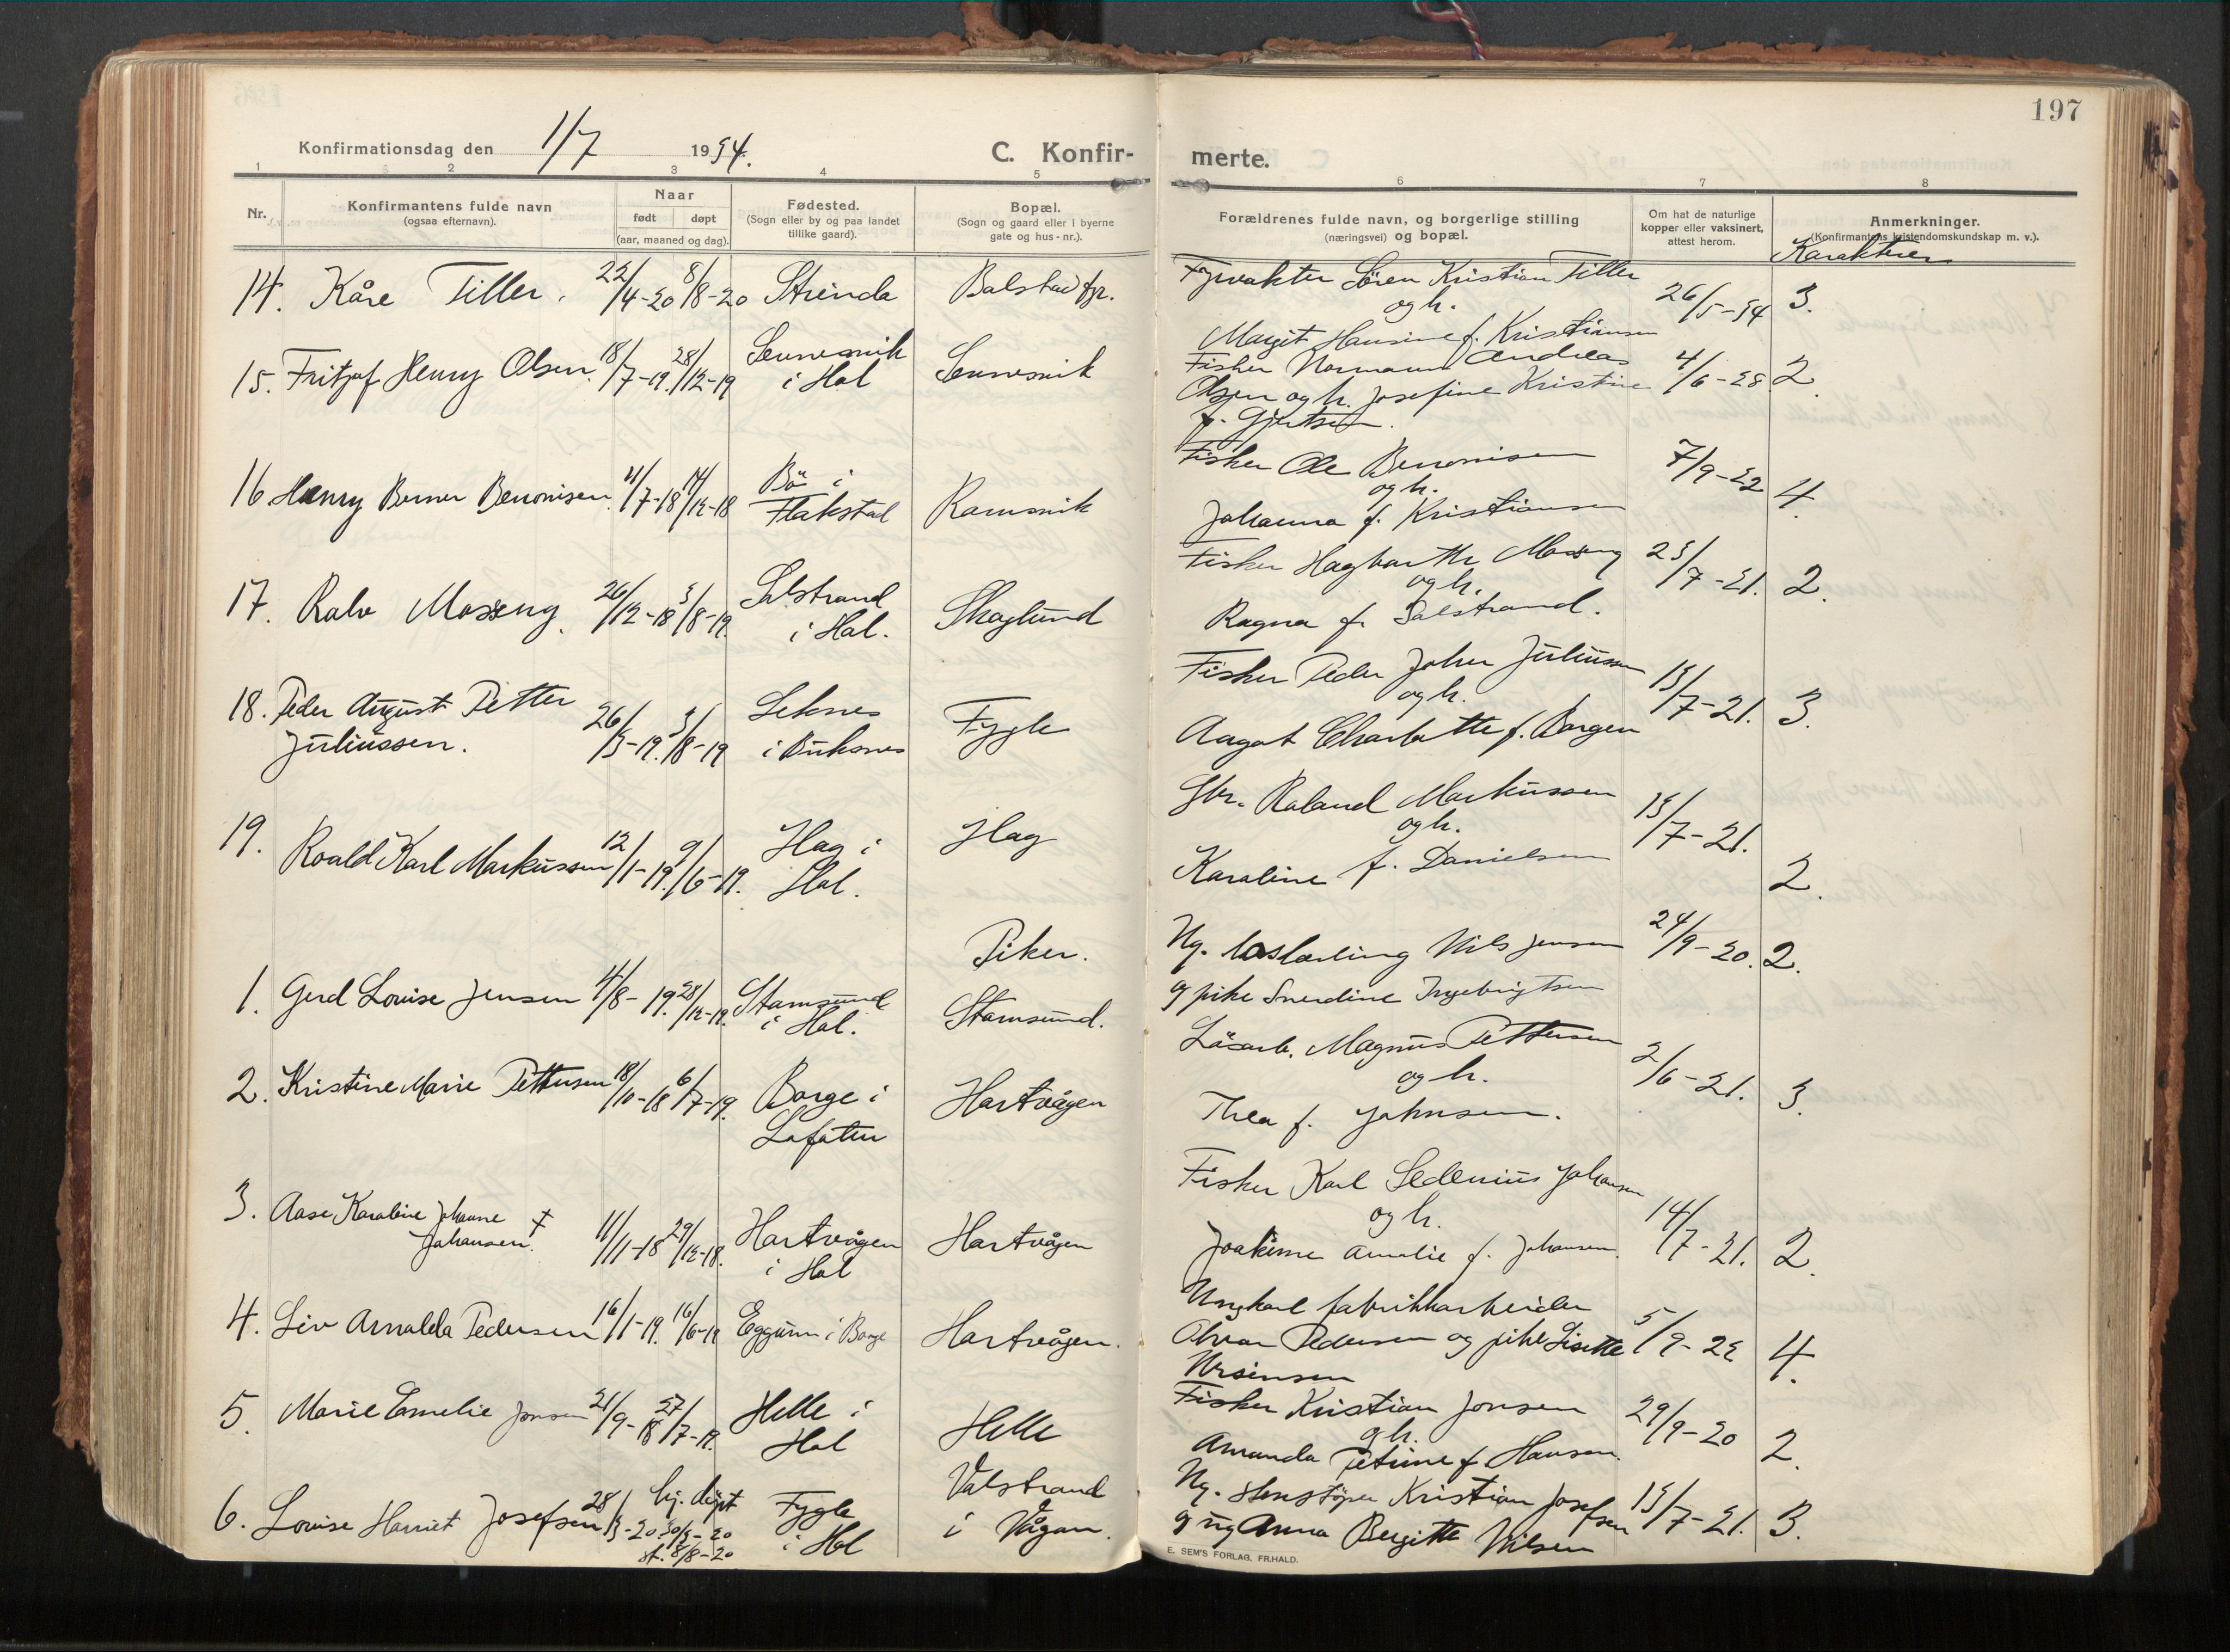 197
Konfirmationsdag den 1/7 1934.
C. Konfir-
merte.
1 2 3 4 5 6 7 8
Nr.
Konfirmantens fulde navn
(ogsaa efternavn).
Naar
født døpt
(aar, maaned og dag).
Fødested.
(Sogn eller by og paa landet
tillike gaard).
Bopæl.
(Sogn og gaard eller i byerne
gate og hus-nr.).
Forældrenes fulde navn, og borgerlige stilling
(næringsvei) og bopæl.
Om hat de naturlige
kopper eller vaksinert,
attest herom.
Anmerkninger.
(Konfirmantens kristendomskundskap m. v.).
Karakterer
14. Kåre Tiller. 22/4-20 8/8-20 Strinda Balstad fyr.
Fyrvakter Sören Kristian Tiller
og h.
Margit Hansine f. Kristiansen
26/5-34 3.
15. Fritjof Henry Olsen. 18/7-19. 28/12-19
Sennesvik
i Hol
Sennesvik
Fisker Normann Andreas
Olsen og h. Josefine Kristine
f. Gjertsen.
4/6-28 2.
16 Henry Berner Benonisen. 4/7-18 14/12-18
Bö i
Flakstad
Ramsvik
Fisker Ole Benonisen
og h.
Johanna f. Kristiansen
7/9-22 4.
17. Ralv Mosseng. 26/12-18 3/8-19.
Solstrand
i Hol.
Skaglund
Fisker Hagbarth Mosseng
og h.
Ragna f. Solstrand.
23/7-21. 2.
18. Peder August Petter
Juliussen.
26/3-19. 3/8-19
Leknes
i Buksnes
Fygle
Fisker Peder Johan Juliussen
og h.
Aagot Charlotte f. Borgen
13/7-21. 3.
19. Roald Karl Markussen 12/1-19. 9/6-19.
Hag i
Hol.
Hag
Gbr. Roland Markussen
og h.
Karoline f. Danielsen
13/7-21.
2.
Piker.
1. Gerd Louise Jensen 4/8-19. 28/12-19.
Stamsund
i Hol.
Stamsund.
Ug. Nils Jensen
og pike Ingebrigtsen
24/9-20. 2.
2. Kristine Marie Pettersen 18/10-18 6/7-19.
Borge i
Lofoten
Hartvågen
Lösarb. Magnus Pettersen
og h.
Thea f. Johnsen.
2/6-21. 3.
3. Aase Karoline Johanne
Johansen.
11/11-18 29/12-18.
Hartvågen
i Hol
Hartvågen
Fisker Karl Sedenius Johansen
og h.
Joakime Amalie f. Johansen.
14/7-21. 2.
4. Liv Arnalda Pedersen 16/1-19. 16/6-19 Eggum i Borge Hartvågen.
Ungkarl fabrikkarbeider
Alvar Pedersen og pike Lisette
Ursinsen
5/9-22 4.
5. Marie Emelie Jonsen 21/9-18 27/7-19.
Helle i
Hol
Helle
Fisker Kristian Jonsen
og h.
Amanda Petrine f. Hansen.
29/9-20 2.
6. Louise Harriet Josefsen 28/3-20. hj. döpt 30/3-20
st. 8/8-20
Fygle
i Hol
Valstrand
i Vågan.
Ug. Kristian Josefsen
og ug Anna Bergitte Nilsen
13/7-21. 3.
E. SEM'S FORLAG, FR.HALD.